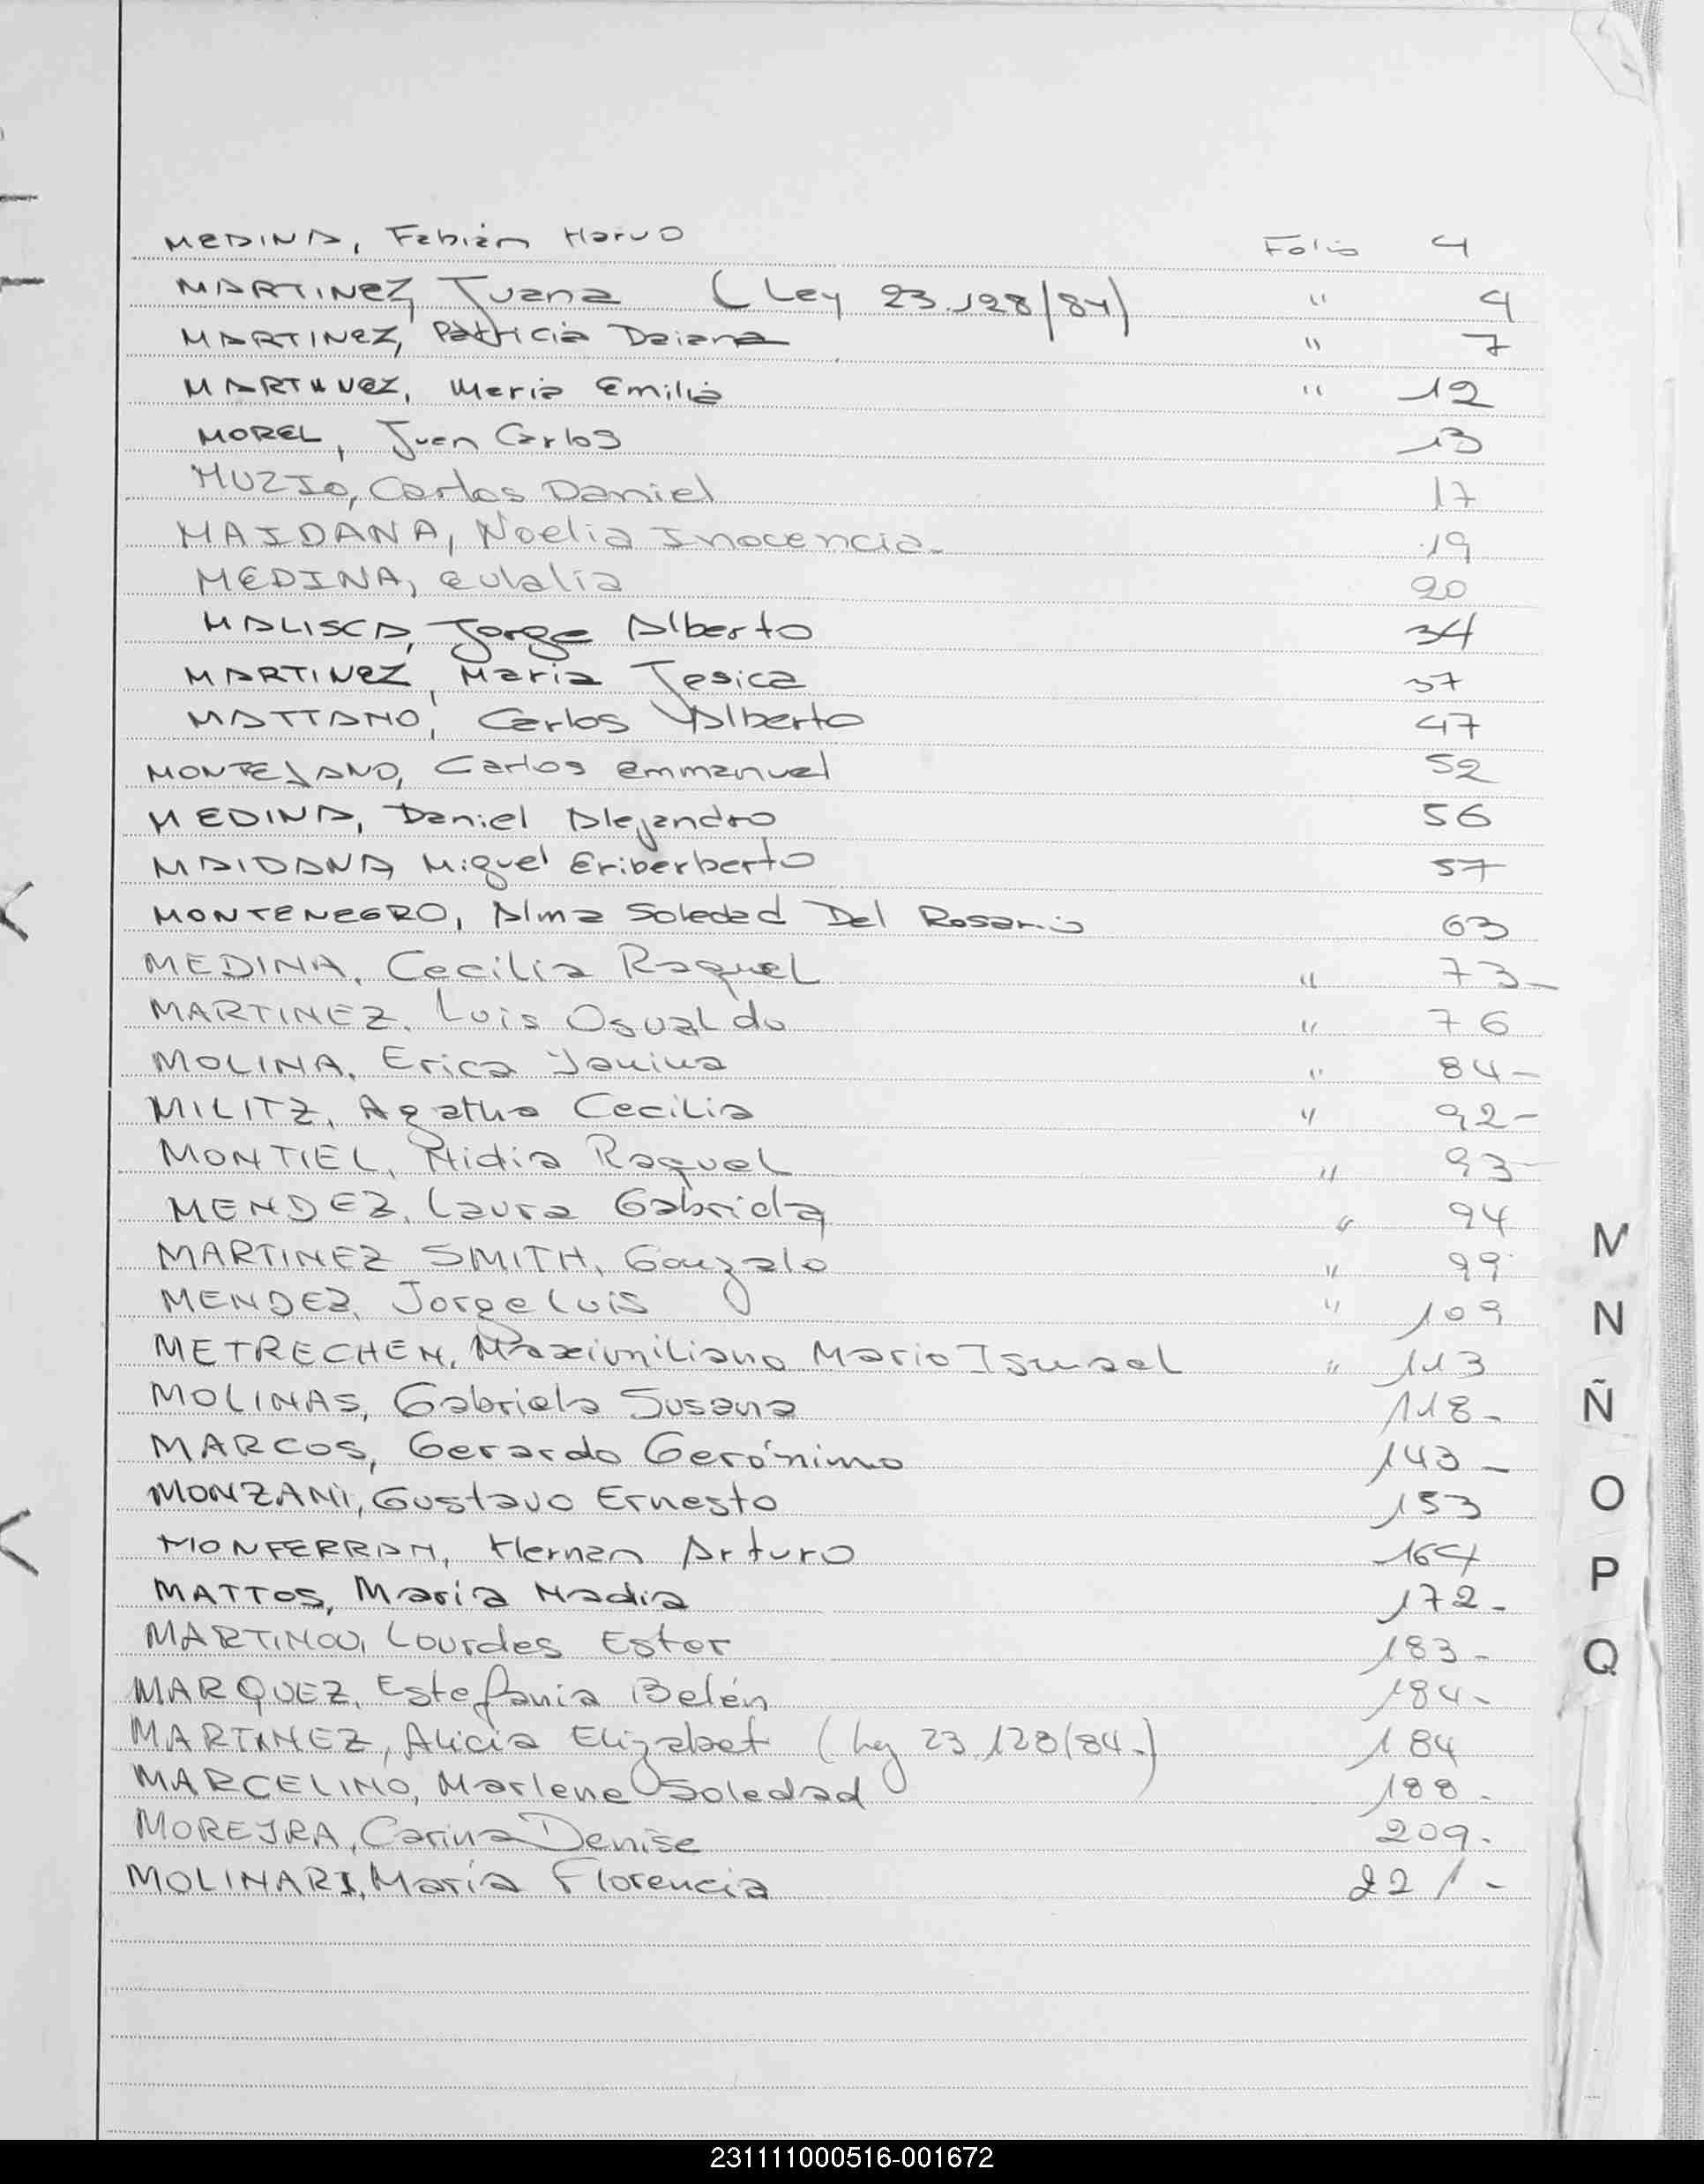 MEDINA, Fabián Harvo Folio 4
MARTINEZ, Juana (Ley 23.128/84) " 4
MARTINEZ, Patricia Daiana " 7
MARTINEZ, Maria Emilia " 12
MOREL, Juan Carlos 13
MUZIO, Carlos Daniel 17
MAIDANA, Noelia Inocencia- 19
MEDINA, Eulalia 20
MALISCA, Jorge Alberto 34
MARTINEZ, Maria Jesica 37
MATTANO, Carlos Alberto 47
MONTEJANO, Carlos Emmanuel 52
MEDINA, Daniel Alejandro 56
MAIDANA, Miguel Eriberberto 57
MONTENEGRO, Alma Soledad Del Rosario 63
MEDINA, Cecilia Raquel " 73-
MARTINEZ, Luis Osvaldo " 76
MOLINA, Erica Yanina " 84-
MILITZ, Agatha Cecilia " 92-
MONTIEL, Nidia Raquel " 93-
MENDEZ, Laura Gabriela " 94
MARTINEZ SMITH, Gonzalo " 99
MENDEZ, Jorge Luis " 109
METRECHEN, Maximiliano Mario Ismael " 113
MOLINAS, Gabriela Susana 118-
MARCOS, Gerardo Gerónimo 143-
MONZANI, Gustavo Ernesto 153
MONFERRAN, Hernan Arturo 164
MATTOS, María Nadia 172-
Lourdes Ester 183-
MARQUEZ, Estefania Belén 184-
MARTINEZ, Alicia Elizabet (Ley 23.128/84-) 184
MARCELINO, Marlene Soledad 188.
MOREJRA, Carina Denise 209.
MOLINARI, María Florencia 221-
M
N
Ñ
O
P
Q
231111000516-001672